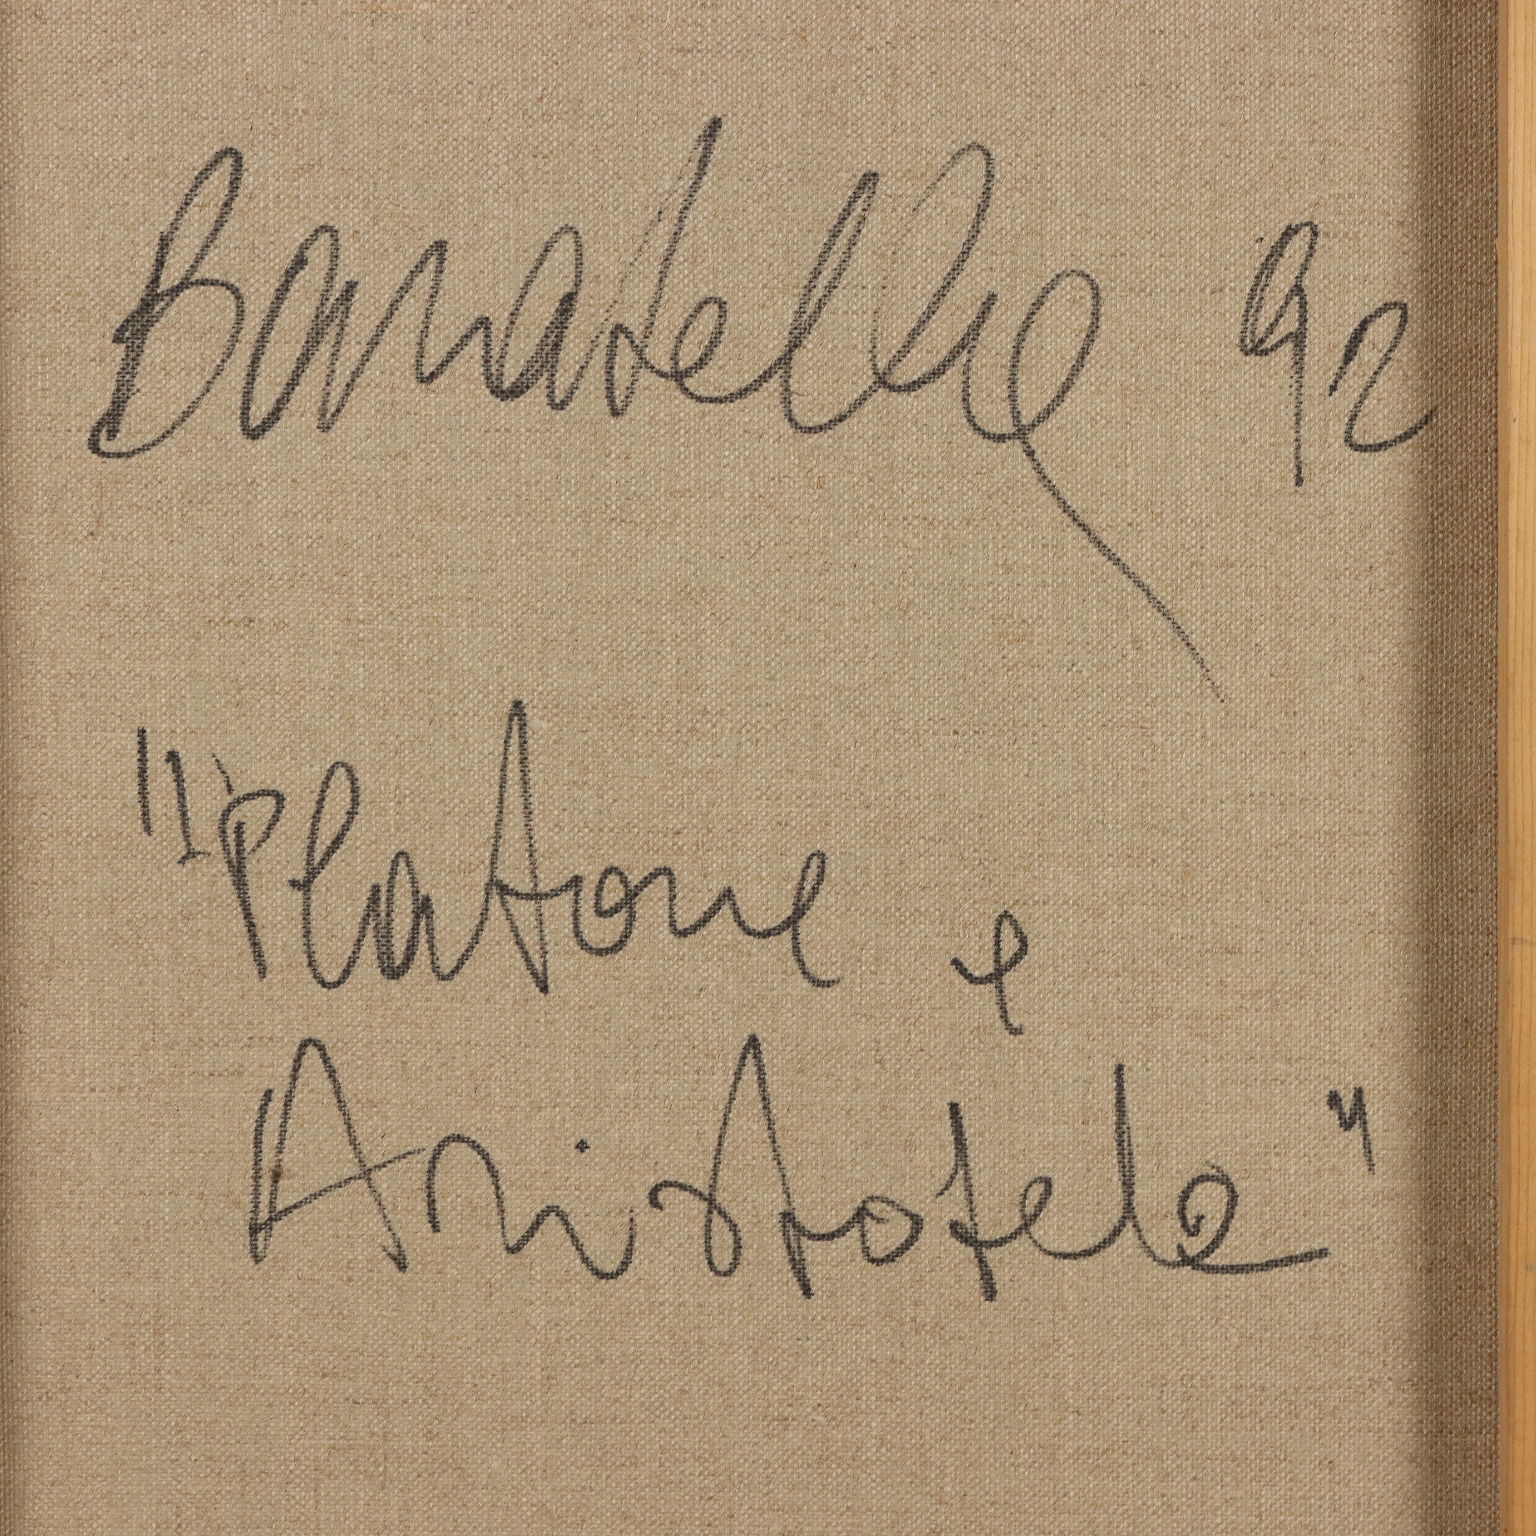 Bonatelli 92
"Platone e
Aristotele"